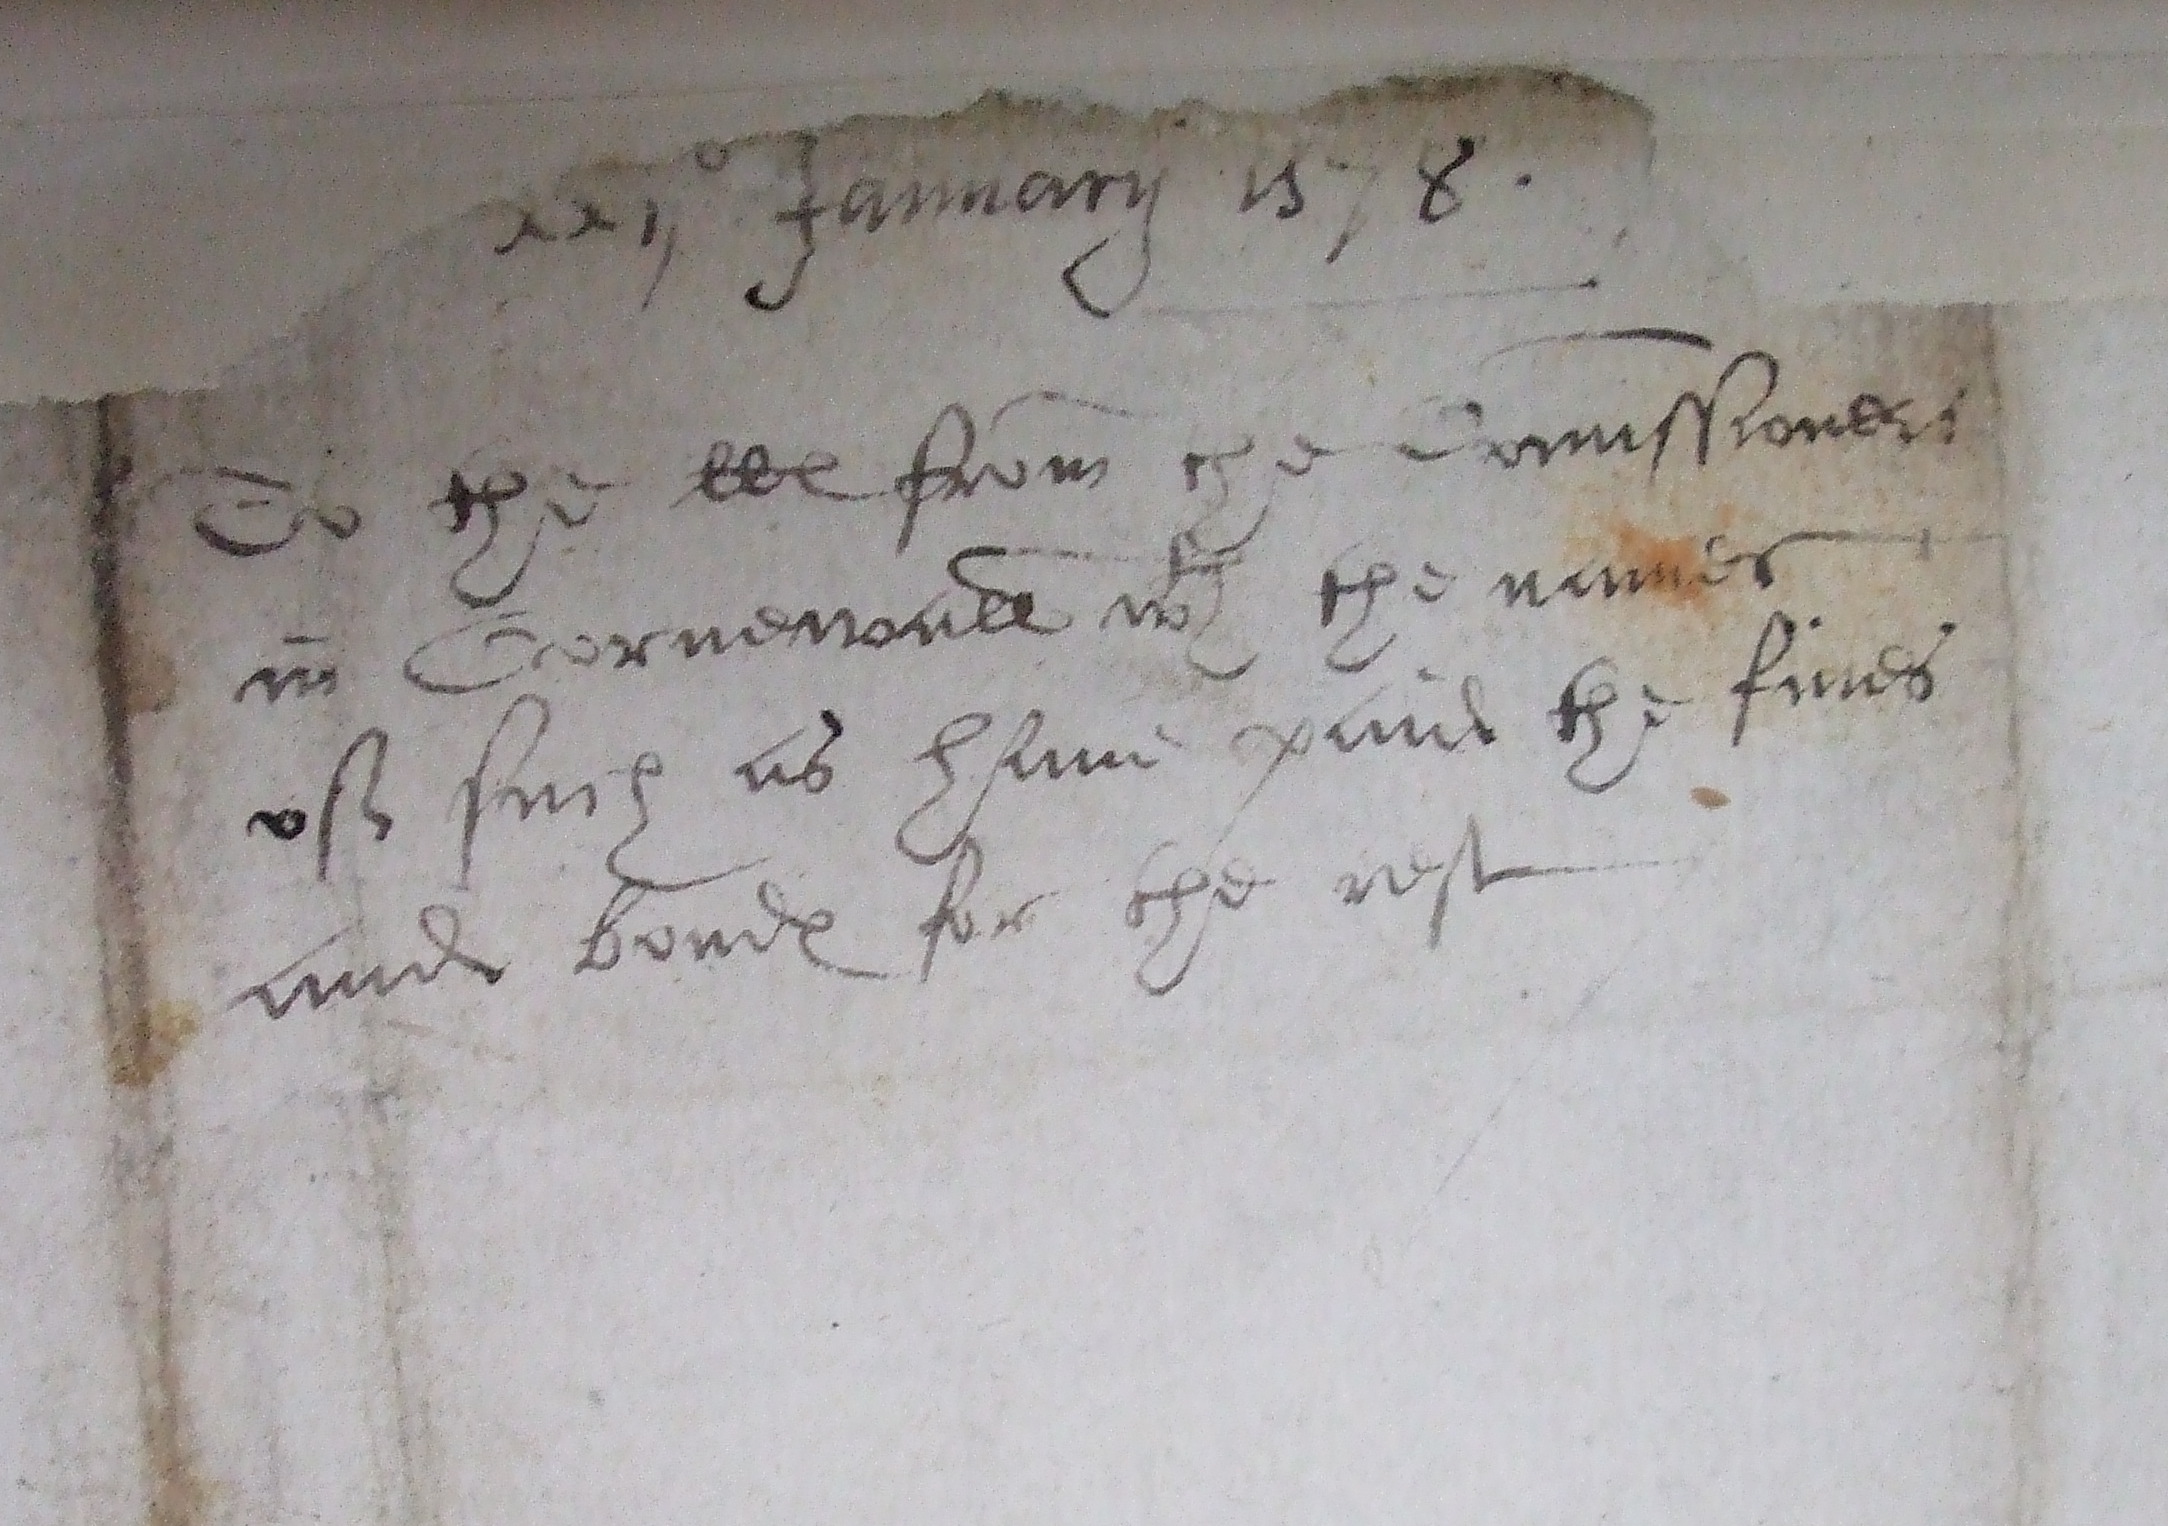 xxij° January 1578.
To the lls from the Comissioners
in Cornewall wth the names
off such as have paid the fines
and bonds for the rest